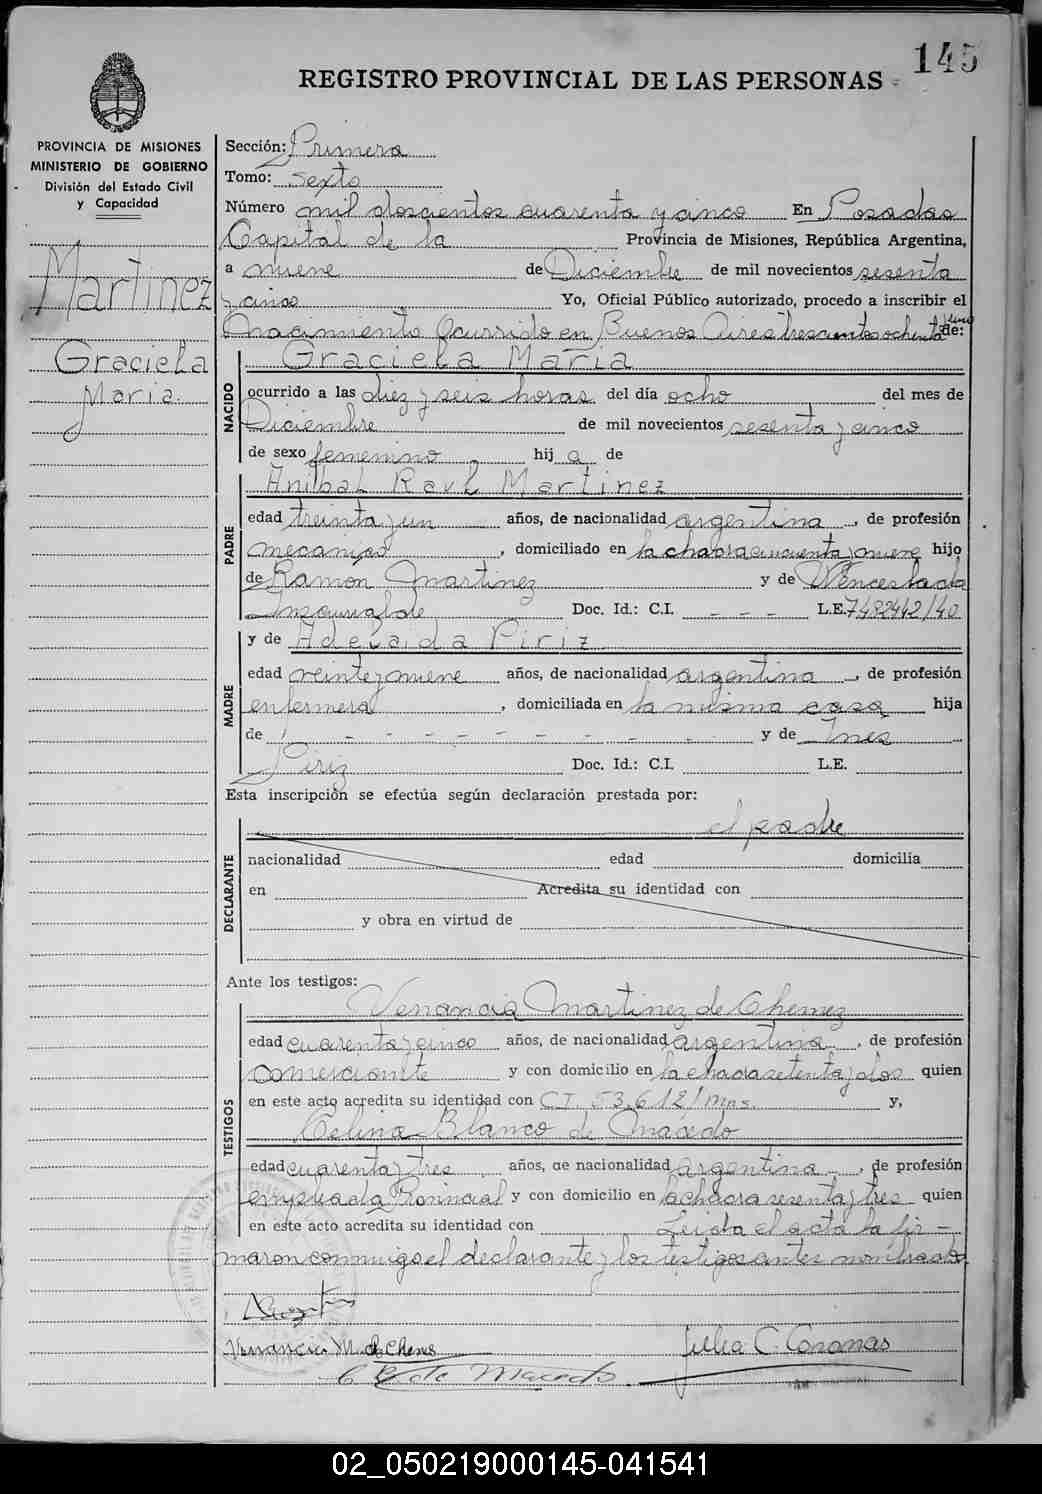 145
REGISTRO PROVINCIAL DE LAS PERSONAS
PROVINCIA DE MISIONES
MINISTERIO DE GOBIERNO
División del Estado Civil
y Capacidad
Martinez
Graciela
Maria.
Sección: Primera
Tomo: Sexto
Número mil doscientos cuarenta y cinco En Posadas
Capital de la Provincia de Misiones, República Argentina,
a nueve de Diciembre de mil novecientos sesenta
y cinco Yo, Oficial Público autorizado, procedo a inscribir el
nacimiento Ocurrido en Buenos Aires trescientos ochenta de:
NACIDO
Graciela Maria
ocurrido a las diez y seis horas del día ocho del mes de
Diciembre de mil novecientos sesenta y cinco
de sexo femenino hij a de
PADRE
Anibal Raul Martinez
edad treinta y un años, de nacionalidad argentina, de profesión
mecanico, domiciliado en la chacra cincuenta y nueve hijo
de Ramón Martinez y de Wenceslada
Insaurralde Doc. Id.: C.I. - - - L.E. 7482442/40
MADRE
y de Adelaida Piriz
edad veinte y nueve años, de nacionalidad argentina, de profesión
enfermera, domiciliada en la misma casa hija
de - - - - - - - - y de Ines
Piriz Doc. Id.: C.I. L.E.
Esta inscripción se efectúa según declaración prestada por:
el padre
DECLARANTE
nacionalidad edad domicilia
en Acredita su identidad con
y obra en virtud de
Ante los testigos:
TESTIGOS
Venancia Martinez de Chemez
edad cuarenta y cinco años, de nacionalidad argentina, de profesión
comerciante y con domicilio en la chacra setenta y dos quien
en este acto acredita su identidad con C.I. 53.612/Mns. y,
Celina Blanco de Macedo
edad cuarenta y tres años, de nacionalidad argentina, de profesión
empleada Provincial y con domicilio en la chacra sesenta y tres quien
en este acto acredita su identidad con Leida el acta la fir-
maron conmigo el declarante y los testigos antes nombrados
Venancia M. de Chemes
Julia C. Coronas
C B de Macedo
02_050219000145-041541